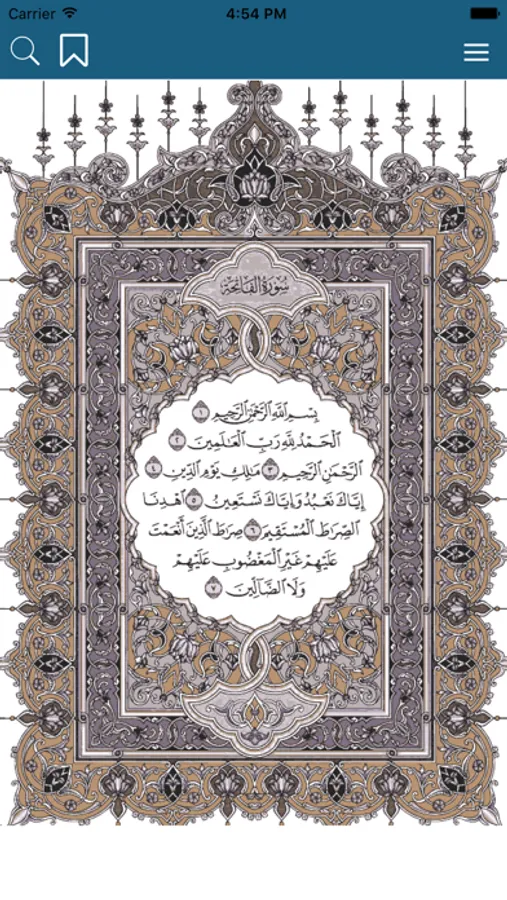 Carrier 4:54 PM
سُورَةُ الفَاتِحَةِ
بِسْمِ ٱللَّهِ ٱلرَّحْمَٰنِ ٱلرَّحِيمِ ١
ٱلْحَمْدُ لِلَّهِ رَبِّ ٱلْعَٰلَمِينَ ٢
ٱلرَّحْمَٰنِ ٱلرَّحِيمِ ٣ مَٰلِكِ يَوْمِ ٱلدِّينِ ٤
إِيَّاكَ نَعْبُدُ وَإِيَّاكَ نَسْتَعِينُ ٥ ٱهْدِنَا
ٱلصِّرَٰطَ ٱلْمُسْتَقِيمَ ٦ صِرَٰطَ ٱلَّذِينَ أَنْعَمْتَ
عَلَيْهِمْ غَيْرِ ٱلْمَغْضُوبِ عَلَيْهِمْ
وَلَا ٱلضَّآلِّينَ ٧